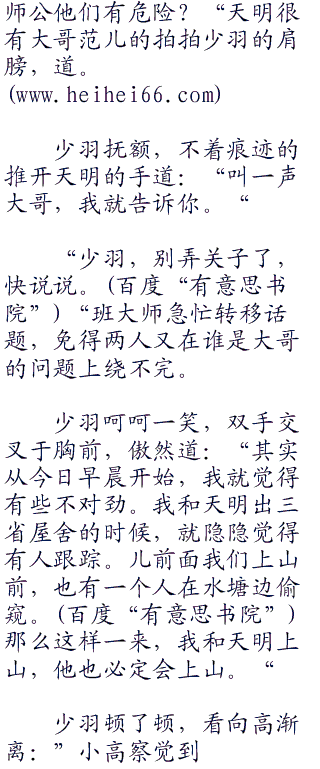 师公他们有危险？“天明很
有大哥范儿的拍拍少羽的肩
膀，道。
(www.heihei66.com)
少羽抚额，不着痕迹的
推开天明的手道：“叫一声
大哥，我就告诉你。“
“少羽，别弄关子了，
快说说。(百度“有意思书
院”)“班大师急忙转移话
题，免得两人又在谁是大哥
的问题上绕不完。
少羽呵呵一笑，双手交
叉于胸前，傲然道：“其实
从今日早晨开始，我就觉得
有些不对劲。我和天明出三
省屋舍的时候，就隐隐觉得
有人跟踪。儿前面我们上山
前，也有一个人在水塘边偷
窥。(百度“有意思书院”)
那么这样一来，我和天明上
山，他也必定会上山。“
少羽顿了顿，看向高渐
离：”小高察觉到